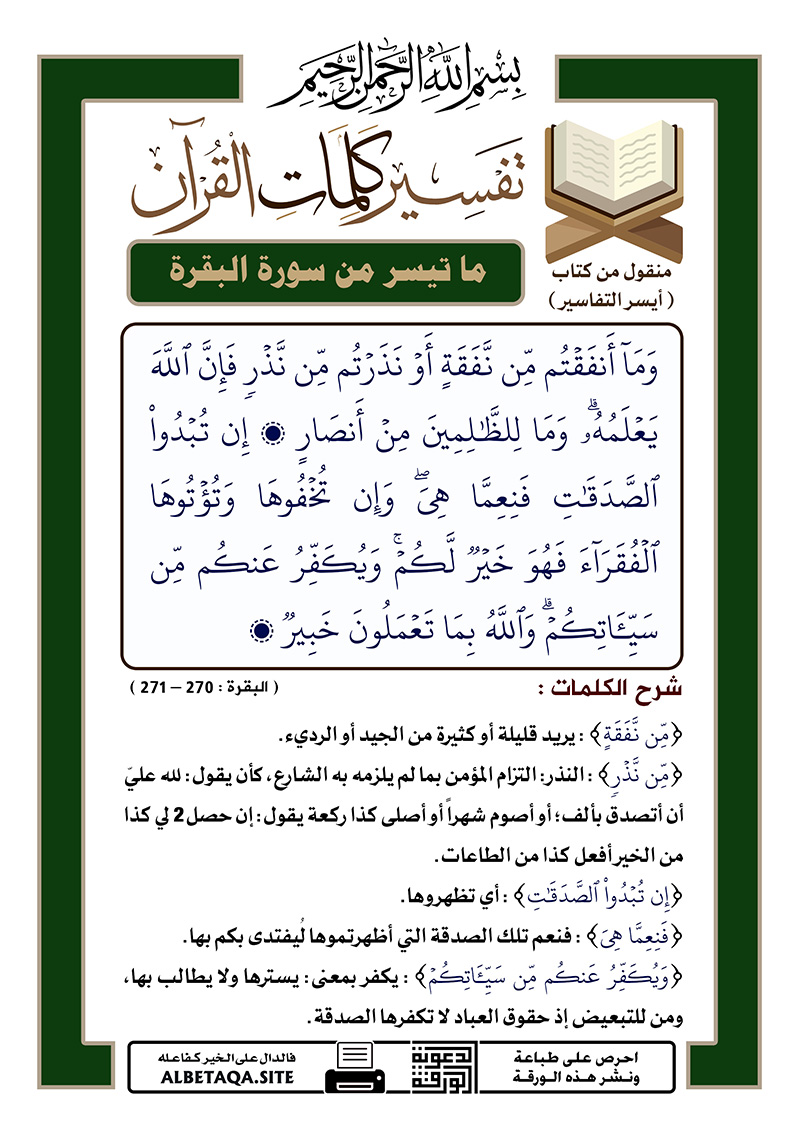 بِسْمِ اللَّهِ الرَّحْمَنِ الرَّحِيمِ
تفسير كلمات القرآن
منقول من كتاب
( أيسر التفاسير )
ما تيسر من سورة البقرة
وَمَآ أَنفَقۡتُم مِّن نَّفَقَةٍ أَوۡ نَذَرۡتُم مِّن نَّذۡرٖ فَإِنَّ ٱللَّهَ
يَعۡلَمُهُۥۗ وَمَا لِلظَّٰلِمِينَ مِنۡ أَنصَارٍ ۝ إِن تُبۡدُواْ
ٱلصَّدَقَٰتِ فَنِعِمَّا هِيَۖ وَإِن تُخۡفُوهَا وَتُؤۡتُوهَا
ٱلۡفُقَرَآءَ فَهُوَ خَيۡرٞ لَّكُمۡۚ وَيُكَفِّرُ عَنكُم مِّن
سَيِّـَٔاتِكُمۡۗ وَٱللَّهُ بِمَا تَعۡمَلُونَ خَبِيرٞ ۝
شرح الكلمات :
( البقرة : 270 – 271 )
﴿مِّن نَّفَقَةٍ﴾ : يريد قليلة أو كثيرة من الجيد أو الرديء.
﴿مِّن نَّذۡرٖ﴾ : النذر: التزام المؤمن بما لم يلزمه به الشارع، كأن يقول: لله عليّ
أن أتصدق بألف؛ أو أصوم شهراً أو أصلى كذا ركعة يقول: إن حصل2 لي كذا
من الخير أفعل كذا من الطاعات.
﴿إِن تُبۡدُواْ ٱلصَّدَقَٰتِ﴾ : أي تظهروها.
﴿فَنِعِمَّا هِيَ﴾ : فنعم تلك الصدقة التي أظهرتموها لُيفتدى بكم بها.
﴿وَيُكَفِّرُ عَنكُم مِّن سَيِّـَٔاتِكُمۡ﴾ : يكفر بمعنى: يسترها ولا يطالب بها،
ومن للتبعيض إذ حقوق العباد لا تكفرها الصدقة.
احرص على طباعة
ونشر هذه الورقة
الدعوية
الورقة
فالدال على الخير كفاعله
ALBETAQA.SITE